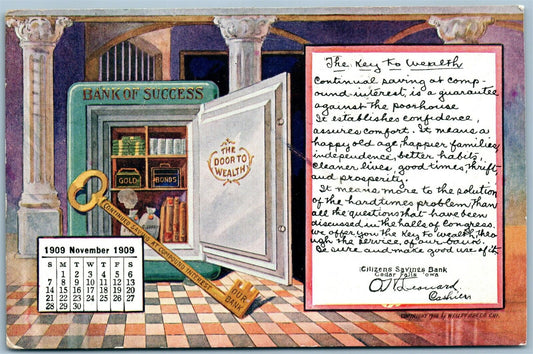 BANK OF SUCCESS
THE
DOOR TO
WEALTH
GOLD
BONDS
CONTINUAL SAVING AT COMPOUND INTEREST
OUR
BANK
1909 November 1909
S M T W T F S
1 2 3 4 5 6
7 8 9 10 11 12 13
14 15 16 17 18 19 20
21 22 23 24 25 26 27
28 29 30
The Key to Wealth
Continual saving at comp-
ound interest, is a guarantee
against the poorhouse
It establishes confidence,
assures comfort. It means a
happy old age, happier families,
independence, better habits,
cleaner lives, good times, thrift,
and prosperity.
It means more to the solution
of the hard times problem, than
all the questions that have been
discussed in the halls of congress.
we offer you the key to wealth, thro-
ugh the service of our bank.
Be sure and make good use of it.
Citizens Savings Bank
Cedar Falls Iowa
Cashier
COPYRIGHT